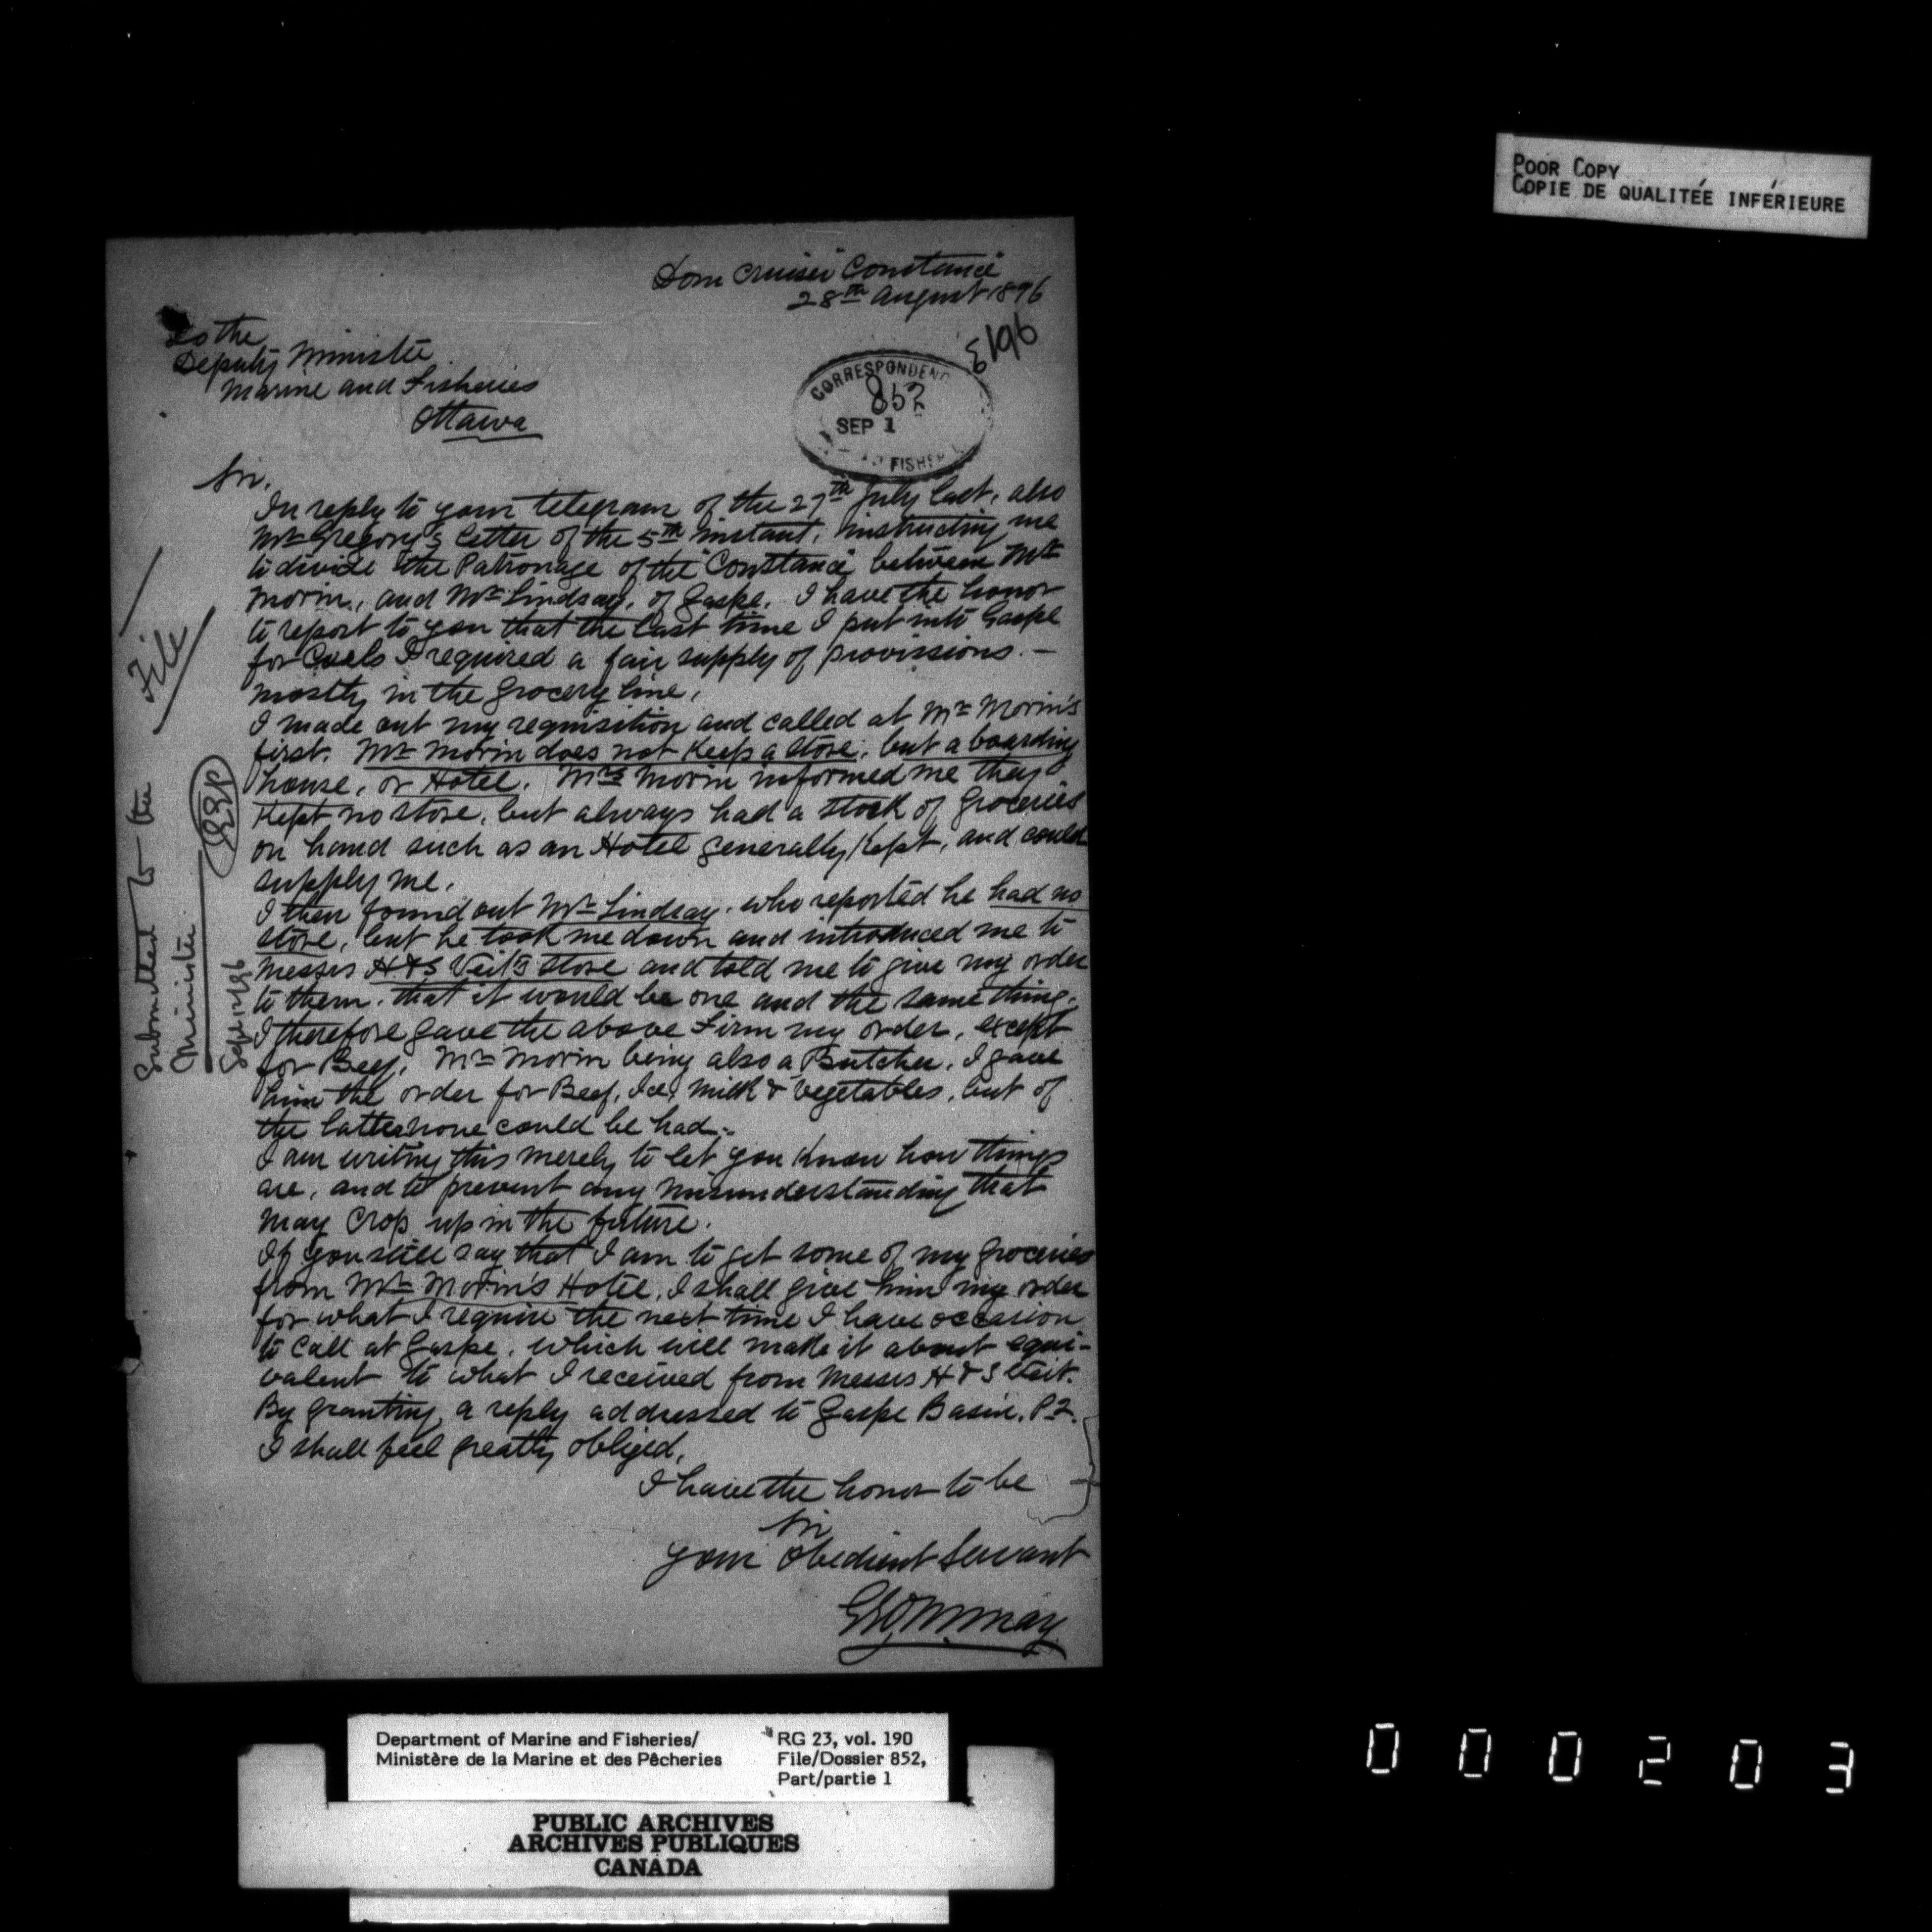 POOR COPY
COPIE DE QUALITÉE INFÉRIEURE
Dom Cruiser "Constance"
28th August 1896
To the
Deputy Minister
Marine and Fisheries
Ottawa
CORRESPONDENC
852
SEP 1
FISHER
Sir.
In reply to your telegram of the 27th July last, also
Mr Gregory's letter of the 5th instant, instructing me
to divide the Patronage of the "Constance" between Mr
Morin, and Mr Lindsay, of Gaspe. I have the honor
to report to you that the last time I put into Gaspe
for Coals I required a fair supply of provissions. —
mostly in the Grocery line.
I made out my requisition and called at Mr Morin's
first. Mr Morin does not keep a store, but a boarding
house, or Hotel. Mrs Morin informed me they
kept no store, but always had a stock of Groceries
on hand such as an Hotel generally kept, and could
supply me.
I then found out Mr Lindsay, who reported he had no
store, but he took me down and introduced me to
Messrs H & S Veit's store and told me to give my order
to them, that it would be one and the same thing.
I therefore gave the above Firm my order, except
for Beef, Mr Morin being also a Butcher, I gave
him the order for Beef, Ice, Milk & Vegetables, but of
the latter none could be had.
I am writing this merely to let you know how things
are, and to prevent any misunderstanding that
may crop up in the future.
If you still say that I am to get some of my Groceries
from Mr Morin's Hotel, I shall give him my order
for what I require the next time I have occasion
to call at Gaspe, which will make it about equi-
valent to what I received from Messrs H & S Veit.
By granting a reply addressed to Gaspe Basin. P.Q.
I shall feel greatly obliged.
I have the honor to be
Sir
Your Obedient Servant
File
Submitted to the
Minister
Sept 12/96
Department of Marine and Fisheries/
Ministère de la Marine et des Pêcheries
RG 23, vol. 190
File/Dossier 852,
Part/partie 1
PUBLIC ARCHIVES
ARCHIVES PUBLIQUES
CANADA
000203